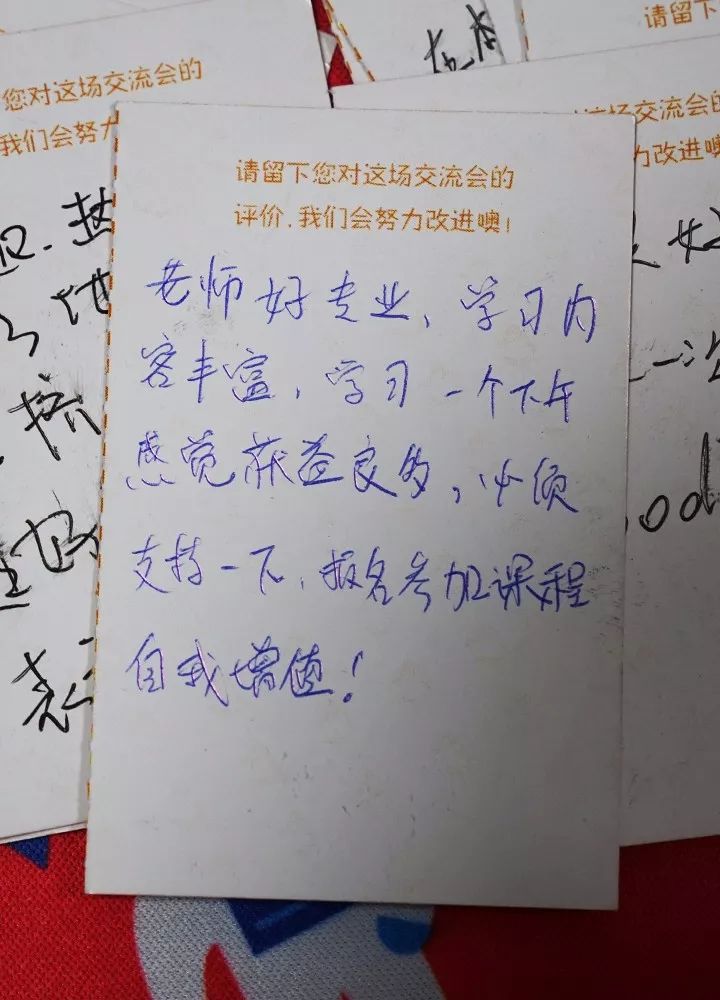 请留下您对这场交流会的
评价，我们会努力改进噢！
老师好专业、学习内
容丰富，学习一个下午
感觉获益良多，必须
支持一下，报名参加课程
自我增值！
您对这场交流会的
我们会努力
请留下
这场交流会的
力改进噢